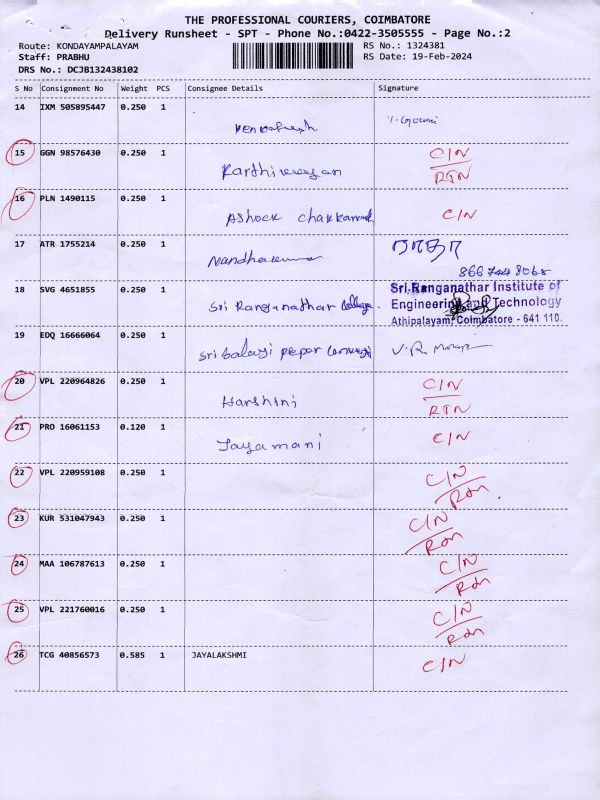 THE PROFESSIONAL COURIERS, COIMBATORE
Delivery Runsheet - SPT - Phone No.:0422-3505555 - Page No.:2
Route: KONDAYAMPALAYAM RS No.: 1324381
Staff: PRABHU RS Date: 19-Feb-2024
DRS No.: DCJB132438102
S No Consignment No Weight PCS Consignee Details Signature
14 IXM 505895447 0.250 1
15 GGN 98576430 0.250 1 C/N
RTN
16 PLN 1490115 0.250 1 Ashock C/N
17 ATR 1755214 0.250 1
8667448068
18 SVG 4651855 0.250 1 Sri Ranganathar College. Sri Ranganathar Institute of
Engineering and Technology
Athipalayam, Coimbatore - 641 110.
19 EDQ 16666064 0.250 1 Sri balaji peper V.R.
20 VPL 220964826 0.250 1 Harshini C/N
RTN
21 PRO 16061153 0.120 1 Jayamani C/N
22 VPL 220959108 0.250 1 C/N
Rtn
23 KUR 531047943 0.250 1 C/N
Rtn
24 MAA 106787613 0.250 1 C/N
Rtn
25 VPL 221760016 0.250 1 C/N
Rtn
26 TCG 40856573 0.585 1 JAYALAKSHMI C/N